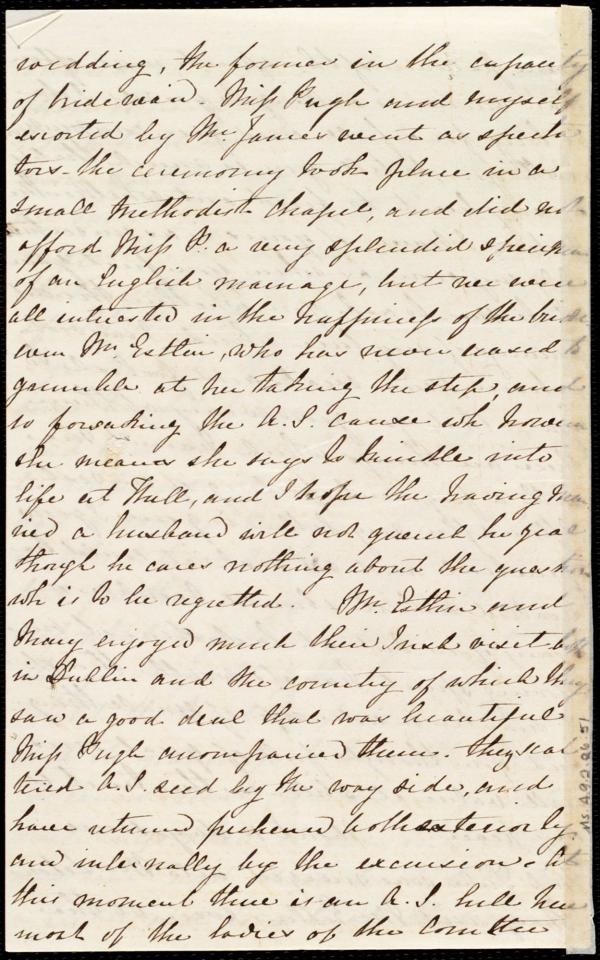 wedding, the former in the capacity
of bridesmaid. Miss Pugh and myself
escorted by Mr. James went as specta
tors - the ceremony took place in a
small Methodist Chapel, and did not
afford Miss P. a very splendid specimen
of an English marriage, but we were
all interested in the happiness of the bride
even Mr. Estlin, who has never ceased to
grumble at her taking the step, and
so forsaking the A.S. cause wh however
she means she says to kindle into
life at Hull, and I hope the having mar
ried a husband will not quench her zeal
though he cares nothing about the question
wh is to be regretted. Mr. Estlin and
Mary enjoyed much their Irish visit both
in Dublin and the country of which they
saw a good deal that was beautiful
Miss Pugh accompanied them. They scat
tered A.S. seed by the way side, and
have returned freshened both exteriorly
and internally by the excursion. At
this moment there is an A.S. lull here
most of the ladies of the Comttee
Ms.A.9.2.26.51